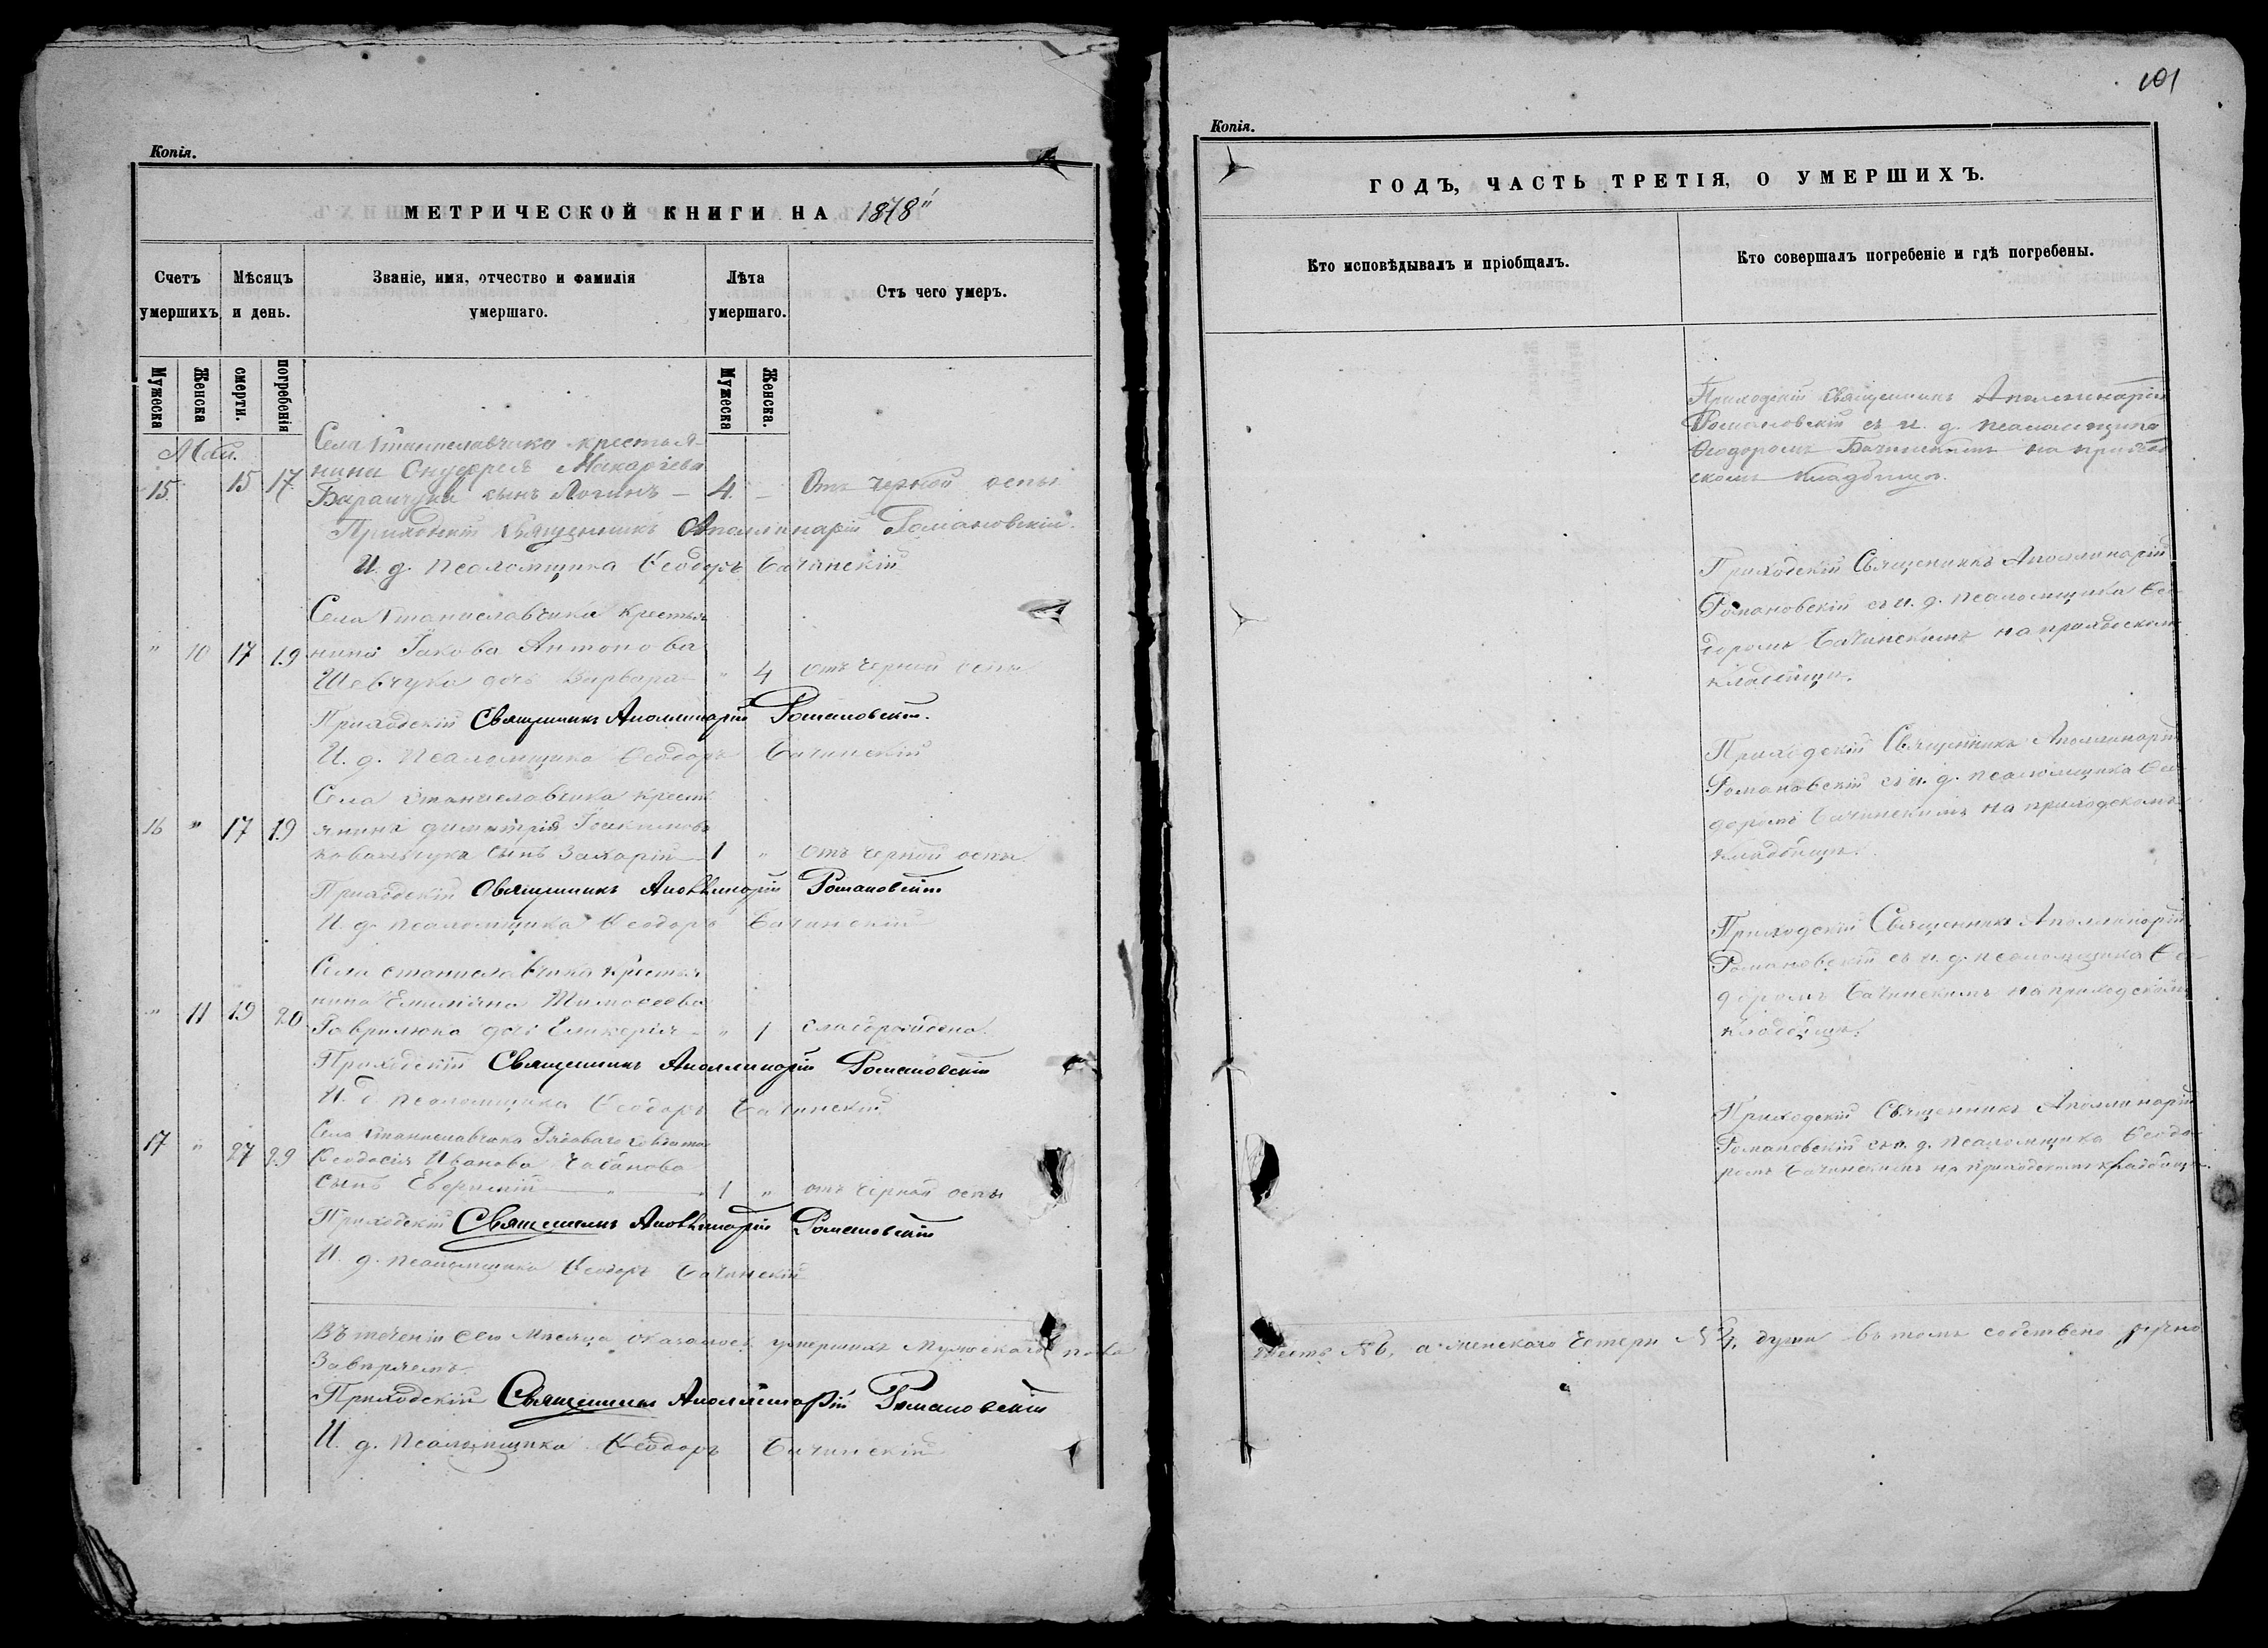 Копія.
МЕТРИЧЕСКОЙ КНИГИ НА 1878
Счетъ умершихъ
Мѣсяцъ и день.
Званіе, имя, отчество и фамилія умершаго.
Лѣта умершаго.
Отъ чего умеръ.
Мужеска
Женска
смерти.
погребенія
Мужеска
Женска.
Май.
Села Станиславчика крестья-
нина Онуфрея Макаріева
15 15 17 Баранчука сынъ Логинъ — 4 — Отъ черной оспы
Приходскій Священникъ Аполлинарій Романовскій.
И. д. псаломщика Ѳеодоръ Бачинскій
Села Станиславчика крестья
" 10 17 19 нина Іакова Антонова
Шевчука дочь Варвара " 4 отъ черной оспы
Приходскій Священникъ Аполлинарій Романовскій.
И. д. псаломщика Ѳеодоръ Бачинскій
Села Станиславчика крестъ
16 " 17 19 янина Димитрія Іоакимова
Ковальчука сынъ Захарій 1 " отъ черной оспы.
Приходскій Священникъ Аполлинарій Романовскій
И. д. псаломщика Ѳеодоръ Бачинскій
Села Станиславчика крестья
" 11 19 20 нина Емиліяна Тимоѳеева
Гаврилюка дочь Гликерія — " 1 слаборождена.
Приходскій Священникъ Аполлинарій Романовскій
И. д. псаломщика Ѳеодоръ Бачинскій
Села Станиславчика Рядоваго
17 " 27 29 Ѳеодосія Иванова Чабанова
сынъ " 1 " отъ черной оспы
Приходскій Священникъ Аполлинарій Романовскій
И. д. псаломщика Ѳеодоръ Бачинскій
Въ теченіи сего мѣсяца оказалось умершихъ мужескаго пола
Завѣряемъ.
Приходскій Священникъ Аполлинарій Романовскій
И. д. псаломщика Ѳеодоръ Бачинскій
101
Копія.
ГОДЪ, ЧАСТЬ ТРЕТІЯ, О УМЕРШИХЪ.
Кто исповѣдывалъ и пріобщалъ.
Кто совершалъ погребеніе и гдѣ погребены.
Приходскій Священникъ Аполлинарій
Романовскій съ и. д. псаломщика
Ѳеодоромъ Бачинскимъ на приход
скомъ кладбищѣ.
Приходскій Священникъ Аполлинарій
Романовскій съ и. д. псаломщика Ѳео-
доромъ Бачинскимъ на приходскомъ
кладбищѣ.
Приходскій Священникъ Аполлинарій
Романовскій съ и. д. псаломщика Ѳео-
доромъ Бачинскимъ на приходскомъ
кладбищѣ.
Приходскій Священникъ Аполлинарій
Романовскій съ и. д. псаломщика Ѳео-
доромъ Бачинскимъ на приходскомъ
кладбищѣ.
Приходскій Священникъ Аполлинарій
Романовскій съ и. д. псаломщика Ѳеодо-
ромъ Бачинскимъ на приходскомъ кладбищѣ.
шесть № 6, а женскаго четыри № 4, души въ томъ собствено